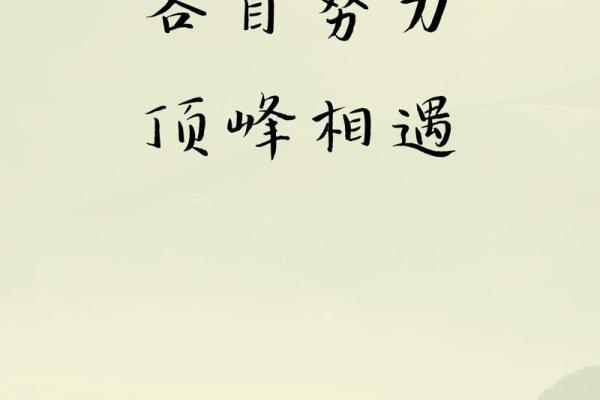 各自努力
顶峰相遇